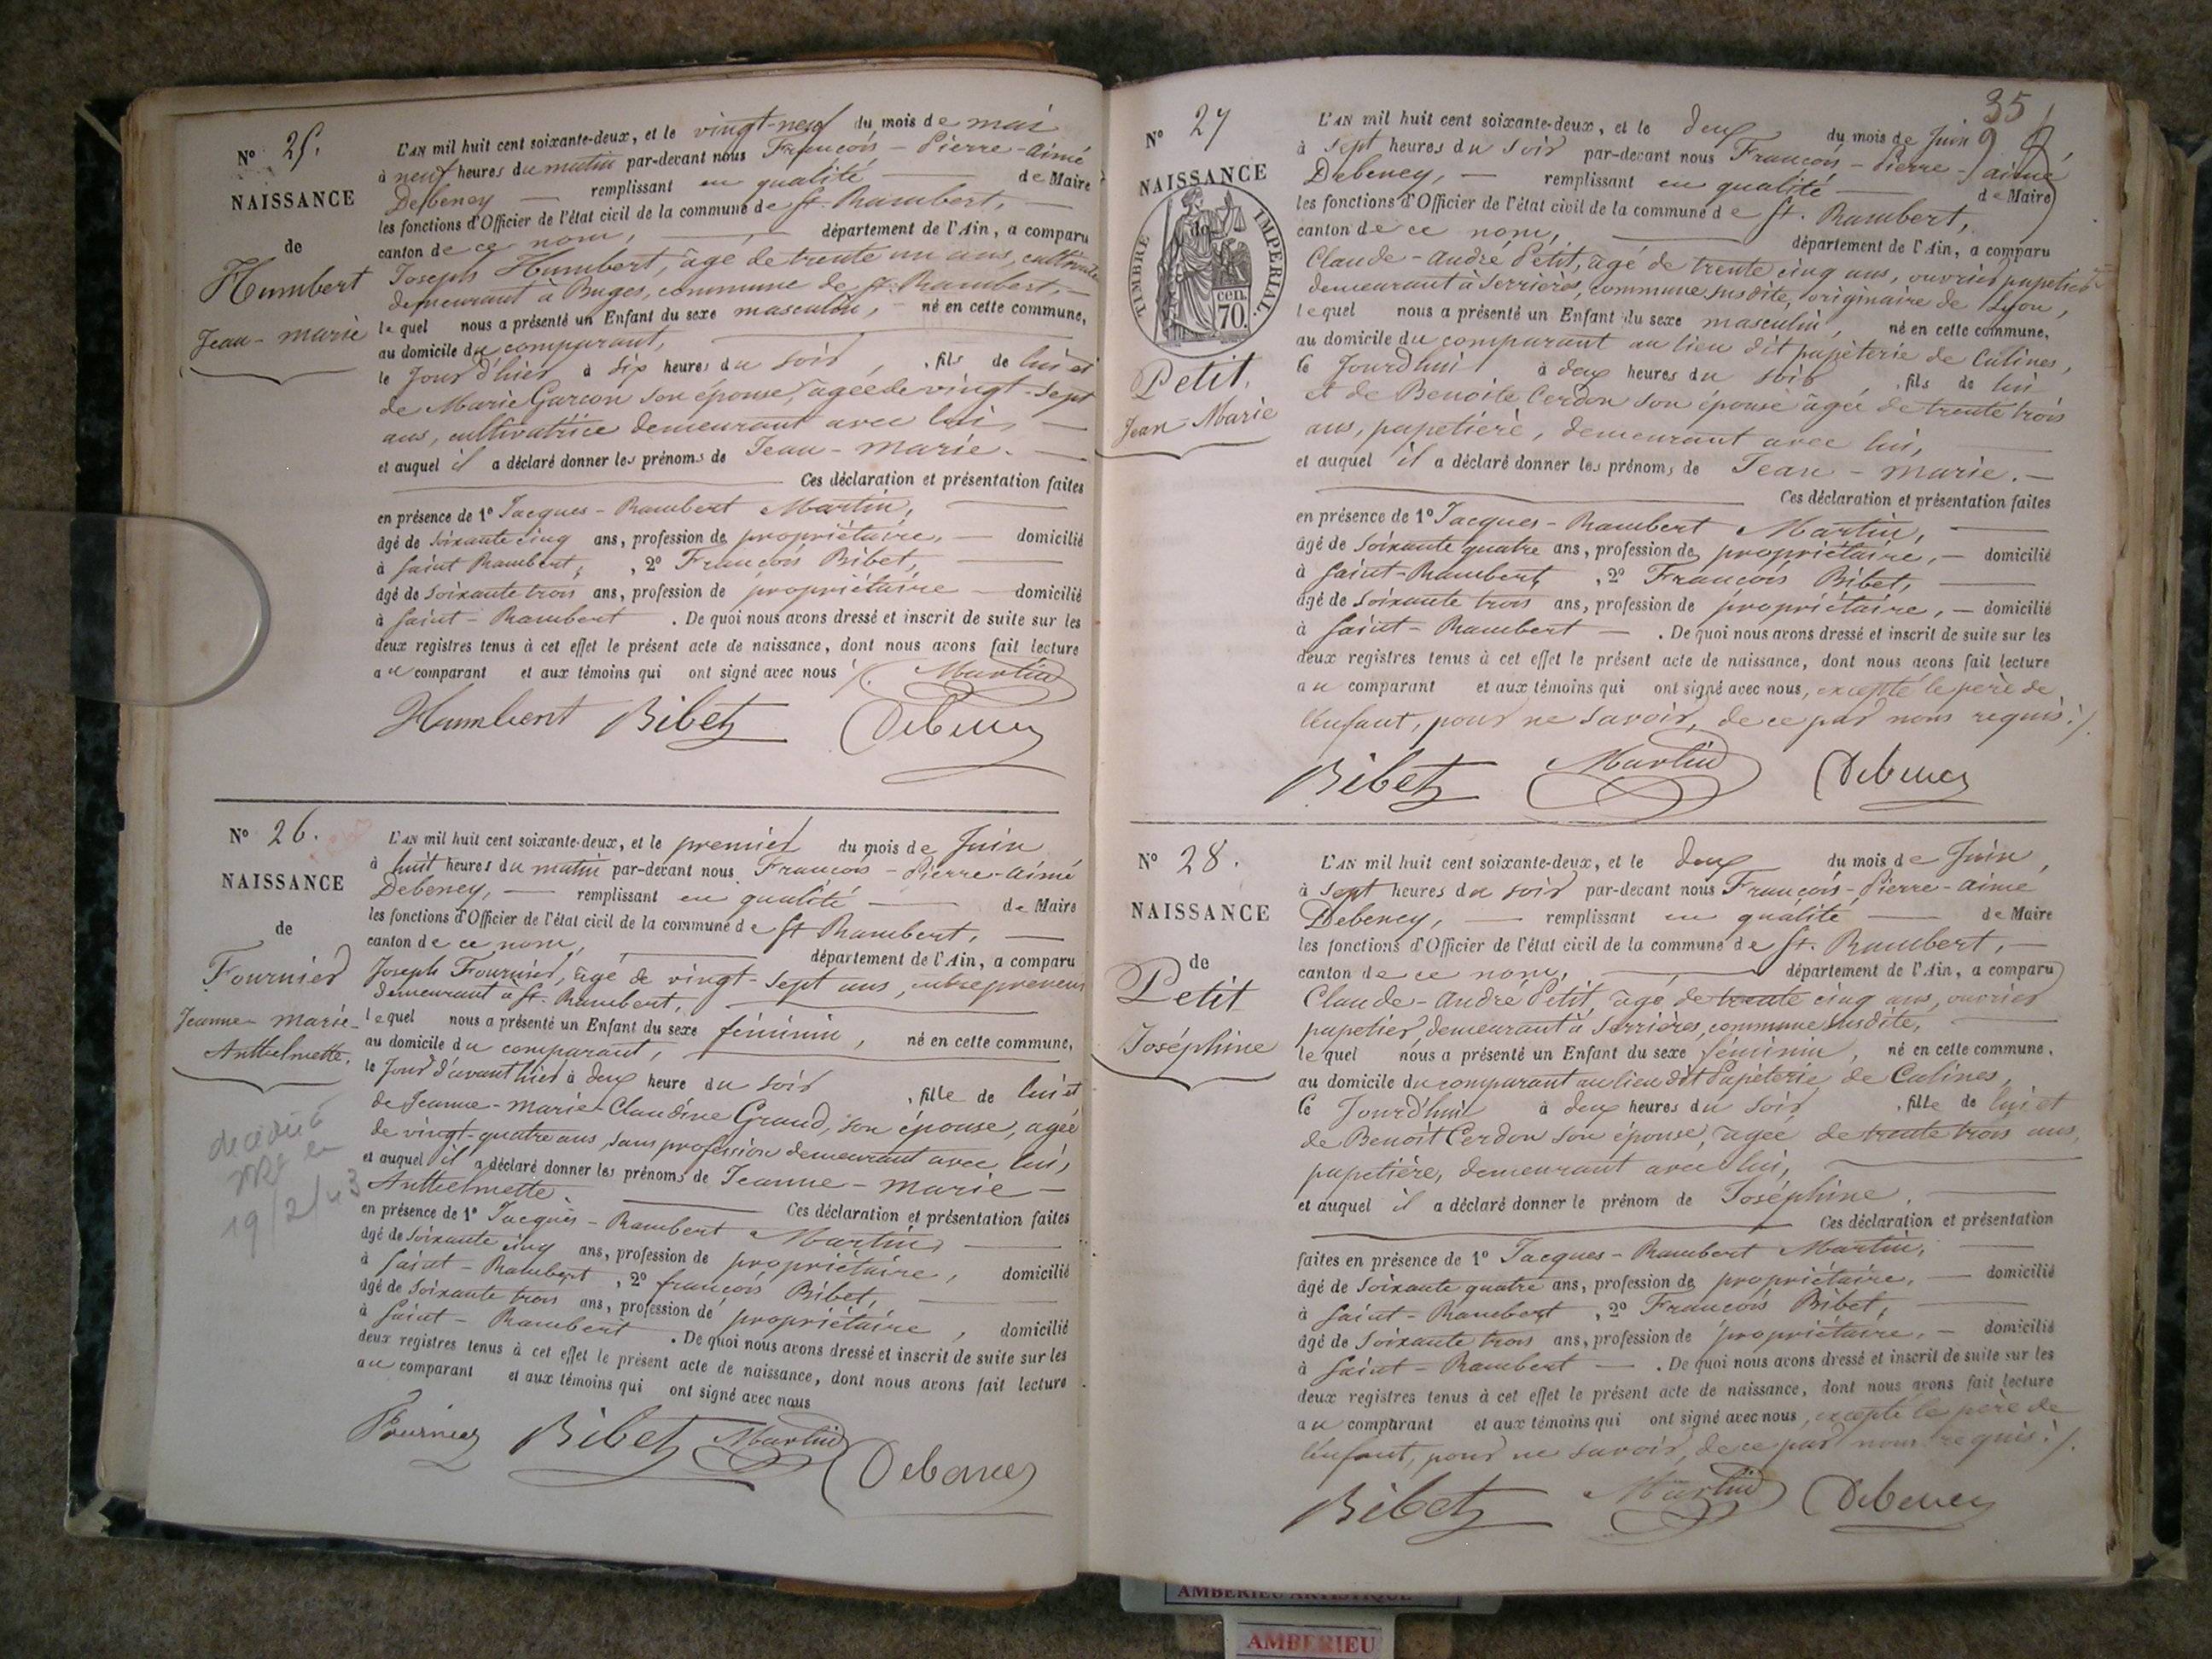 N° 25.
NAISSANCE
de
Humbert
Jean-marie
L'AN mil huit cent soixante-deux, et le vingt-neuf du mois de mai
à neuf heures du matin par-devant nous François-Pierre-aimé
Debeney — remplissant en qualité — de Maire
les fonctions d'Officier de l'état civil de la commune de St. Rambert, —
canton de ce nom, — département de l'Ain, a comparu
Joseph Humbert, âgé de trente un ans, cultivateur
demeurant à Buges, commune de St. Rambert, —
lequel nous a présenté un Enfant du sexe masculin, né en cette commune,
au domicile du comparant,
le Jour d'hier à six heures du soir, fils de lui et
de Marie Garcon son épouse, âgée de vingt-sept
ans, cultivatrice demeurant avec lui, —
et auquel il a déclaré donner les prénoms de Jean-marie. —
Ces déclaration et présentation faites
en présence de 1° Jacques-Rambert Martin,
âgé de soixante cinq ans, profession de propriétaire, — domicilié
à Saint Rambert, , 2° François Bibet,
âgé de soixante trois ans, profession de propriétaire — domicilié
à Saint-Rambert . De quoi nous avons dressé et inscrit de suite sur les
deux registres tenus à cet effet le présent acte de naissance, dont nous avons fait lecture
au comparant et aux témoins qui ont signé avec nous ./. Martin
Humbert Bibet Debeney
N° 26.
NAISSANCE
de
Fournier
Jeanne-marie-
Anthelmette.
décédée
le
19/2/43
L'AN mil huit cent soixante-deux, et le premier du mois de Juin
à huit heures du matin par-devant nous François-Pierre-aimé
Debeney, — remplissant en qualité — de Maire
les fonctions d'Officier de l'état civil de la commune de St Rambert, —
canton de ce nom, département de l'Ain, a comparu
Joseph Fournier, âgé de vingt-sept ans, entrepreneur
demeurant à St. Rambert,
lequel nous a présenté un Enfant du sexe féminin, né en cette commune,
au domicile du comparant,
le Jour d'avant hier à deux heure du soir , fille de lui et
de Jeanne-marie-Claudine Grand, son épouse, âgée
de vingt-quatre ans, sans profession demeurant avec lui,
et auquel il a déclaré donner les prénoms de Jeanne-marie-
Anthelmette. Ces déclaration et présentation faites
en présence de 1° Jacques-Rambert Martin,
âgé de soixante cinq ans, profession de propriétaire, domicilié
à Saint-Rambert , 2° françois Bibet,
âgé de soixante trois ans, profession de propriétaire, domicilié
à Saint-Rambert . De quoi nous avons dressé et inscrit de suite sur les
deux registres tenus à cet effet le présent acte de naissance, dont nous avons fait lecture
au comparant et aux témoins qui ont signé avec nous
Fournier Bibet Martin Debeney
35
N° 27
NAISSANCE
de
TIMBRE IMPERIAL.
cen. 70.
Petit,
Jean-Marie
L'AN mil huit cent soixante-deux, et le deux du mois de Juin
à sept heures du soir par-devant nous François-Pierre-aimé
Debeney, — remplissant en qualité — de Maire
les fonctions d'Officier de l'état civil de la commune de St. Rambert,
canton de ce nom, — département de l'Ain, a comparu
Claude-André Petit, âgé de trente cinq ans, ouvrier papetier
demeurant à Serrières, commune susdite, originaire de Lyon,
lequel nous a présenté un Enfant du sexe masculin, né en cette commune,
au domicile du comparant au lieu dit papèterie de Calines,
le Jourd'hui à deux heures du soir , fils de lui
et de Benoite Cerdon son épouse âgée de trente trois
ans, papetière, demeurant avec lui,
et auquel il a déclaré donner les prénoms de Jean-marie. —
Ces déclaration et présentation faites
en présence de 1° Jacques-Rambert Martin,
âgé de soixante quatre ans, profession de propriétaire, — domicilié
à Saint-Rambert , 2° François Bibet,
âgé de soixante trois ans, profession de propriétaire, — domicilié
à Saint-Rambert — . De quoi nous avons dressé et inscrit de suite sur les
deux registres tenus à cet effet le présent acte de naissance, dont nous avons fait lecture
au comparant et aux témoins qui ont signé avec nous, excepté le père de
l'enfant, pour ne savoir, de ce par nous requis ./.
Bibet Martin Debeney
N° 28.
NAISSANCE
de
Petit
Joséphine
L'AN mil huit cent soixante-deux, et le deux du mois de Juin,
à sept heures du soir par-devant nous François-Pierre-aimé
Debeney, — remplissant en qualité — de Maire
les fonctions d'Officier de l'état civil de la commune de St. Rambert, —
canton de ce nom, — département de l'Ain, a comparu
Claude-andré Petit, âgé de trente cinq ans, ouvrier
papetier, demeurant à Serrières, commune susdite,
lequel nous a présenté un Enfant du sexe féminin, né en cette commune.
au domicile du comparant au lieu dit Papèterie de Calines,
le Jourd'hui à deux heures du soir , fille de lui et
de Benoit Cerdon son épouse, âgée de trente trois ans,
papetière, demeurant avec lui,
et auquel il a déclaré donner le prénom de Joséphine.
Ces déclaration et présentation
faites en présence de 1° Jacques-Rambert Martin,
âgé de soixante quatre ans, profession de propriétaire, — domicilié
à Saint-Rambert , 2° François Bibet,
âgé de soixante trois ans, profession de propriétaire, — domicilié
à Saint-Rambert — . De quoi nous avons dressé et inscrit de suite sur les
deux registres tenus à cet effet le présent acte de naissance, dont nous avons fait lecture
au comparant et aux témoins qui ont signé avec nous, excepté le père de
l'enfant, pour ne savoir, de ce par nous requis ./.
Bibet Martin Debeney
AMBERIEU ARTISTIQUE
AMBERIEU